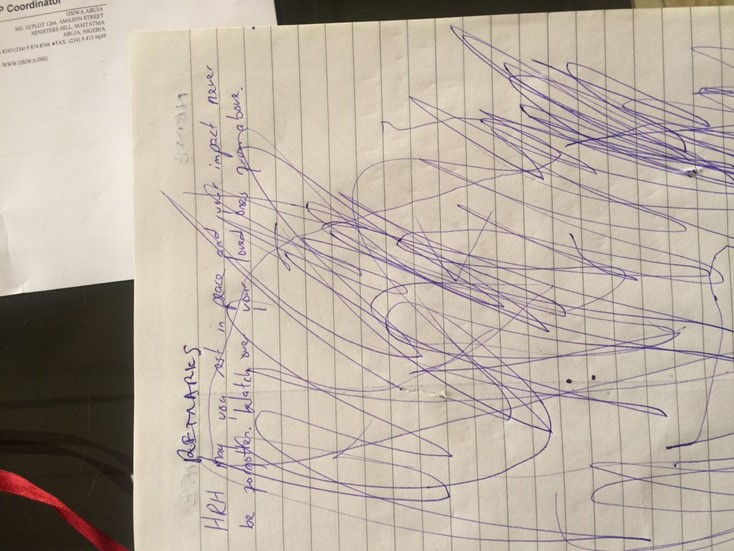 P Coordinator
OSIWA ABUJA
NO. 12/PLOT 1266, AMAZON STREET
MINISTERS HILL, MAITAMA
ABUJA, NIGERIA
8349/(234) 9 874 8346 •FAX: (234) 9 413 6649
WWW.OSIWA.ORG
REMARKS
HRH May you rest in peace and your impact never
be forgotten. Watch over your loved ones from above.